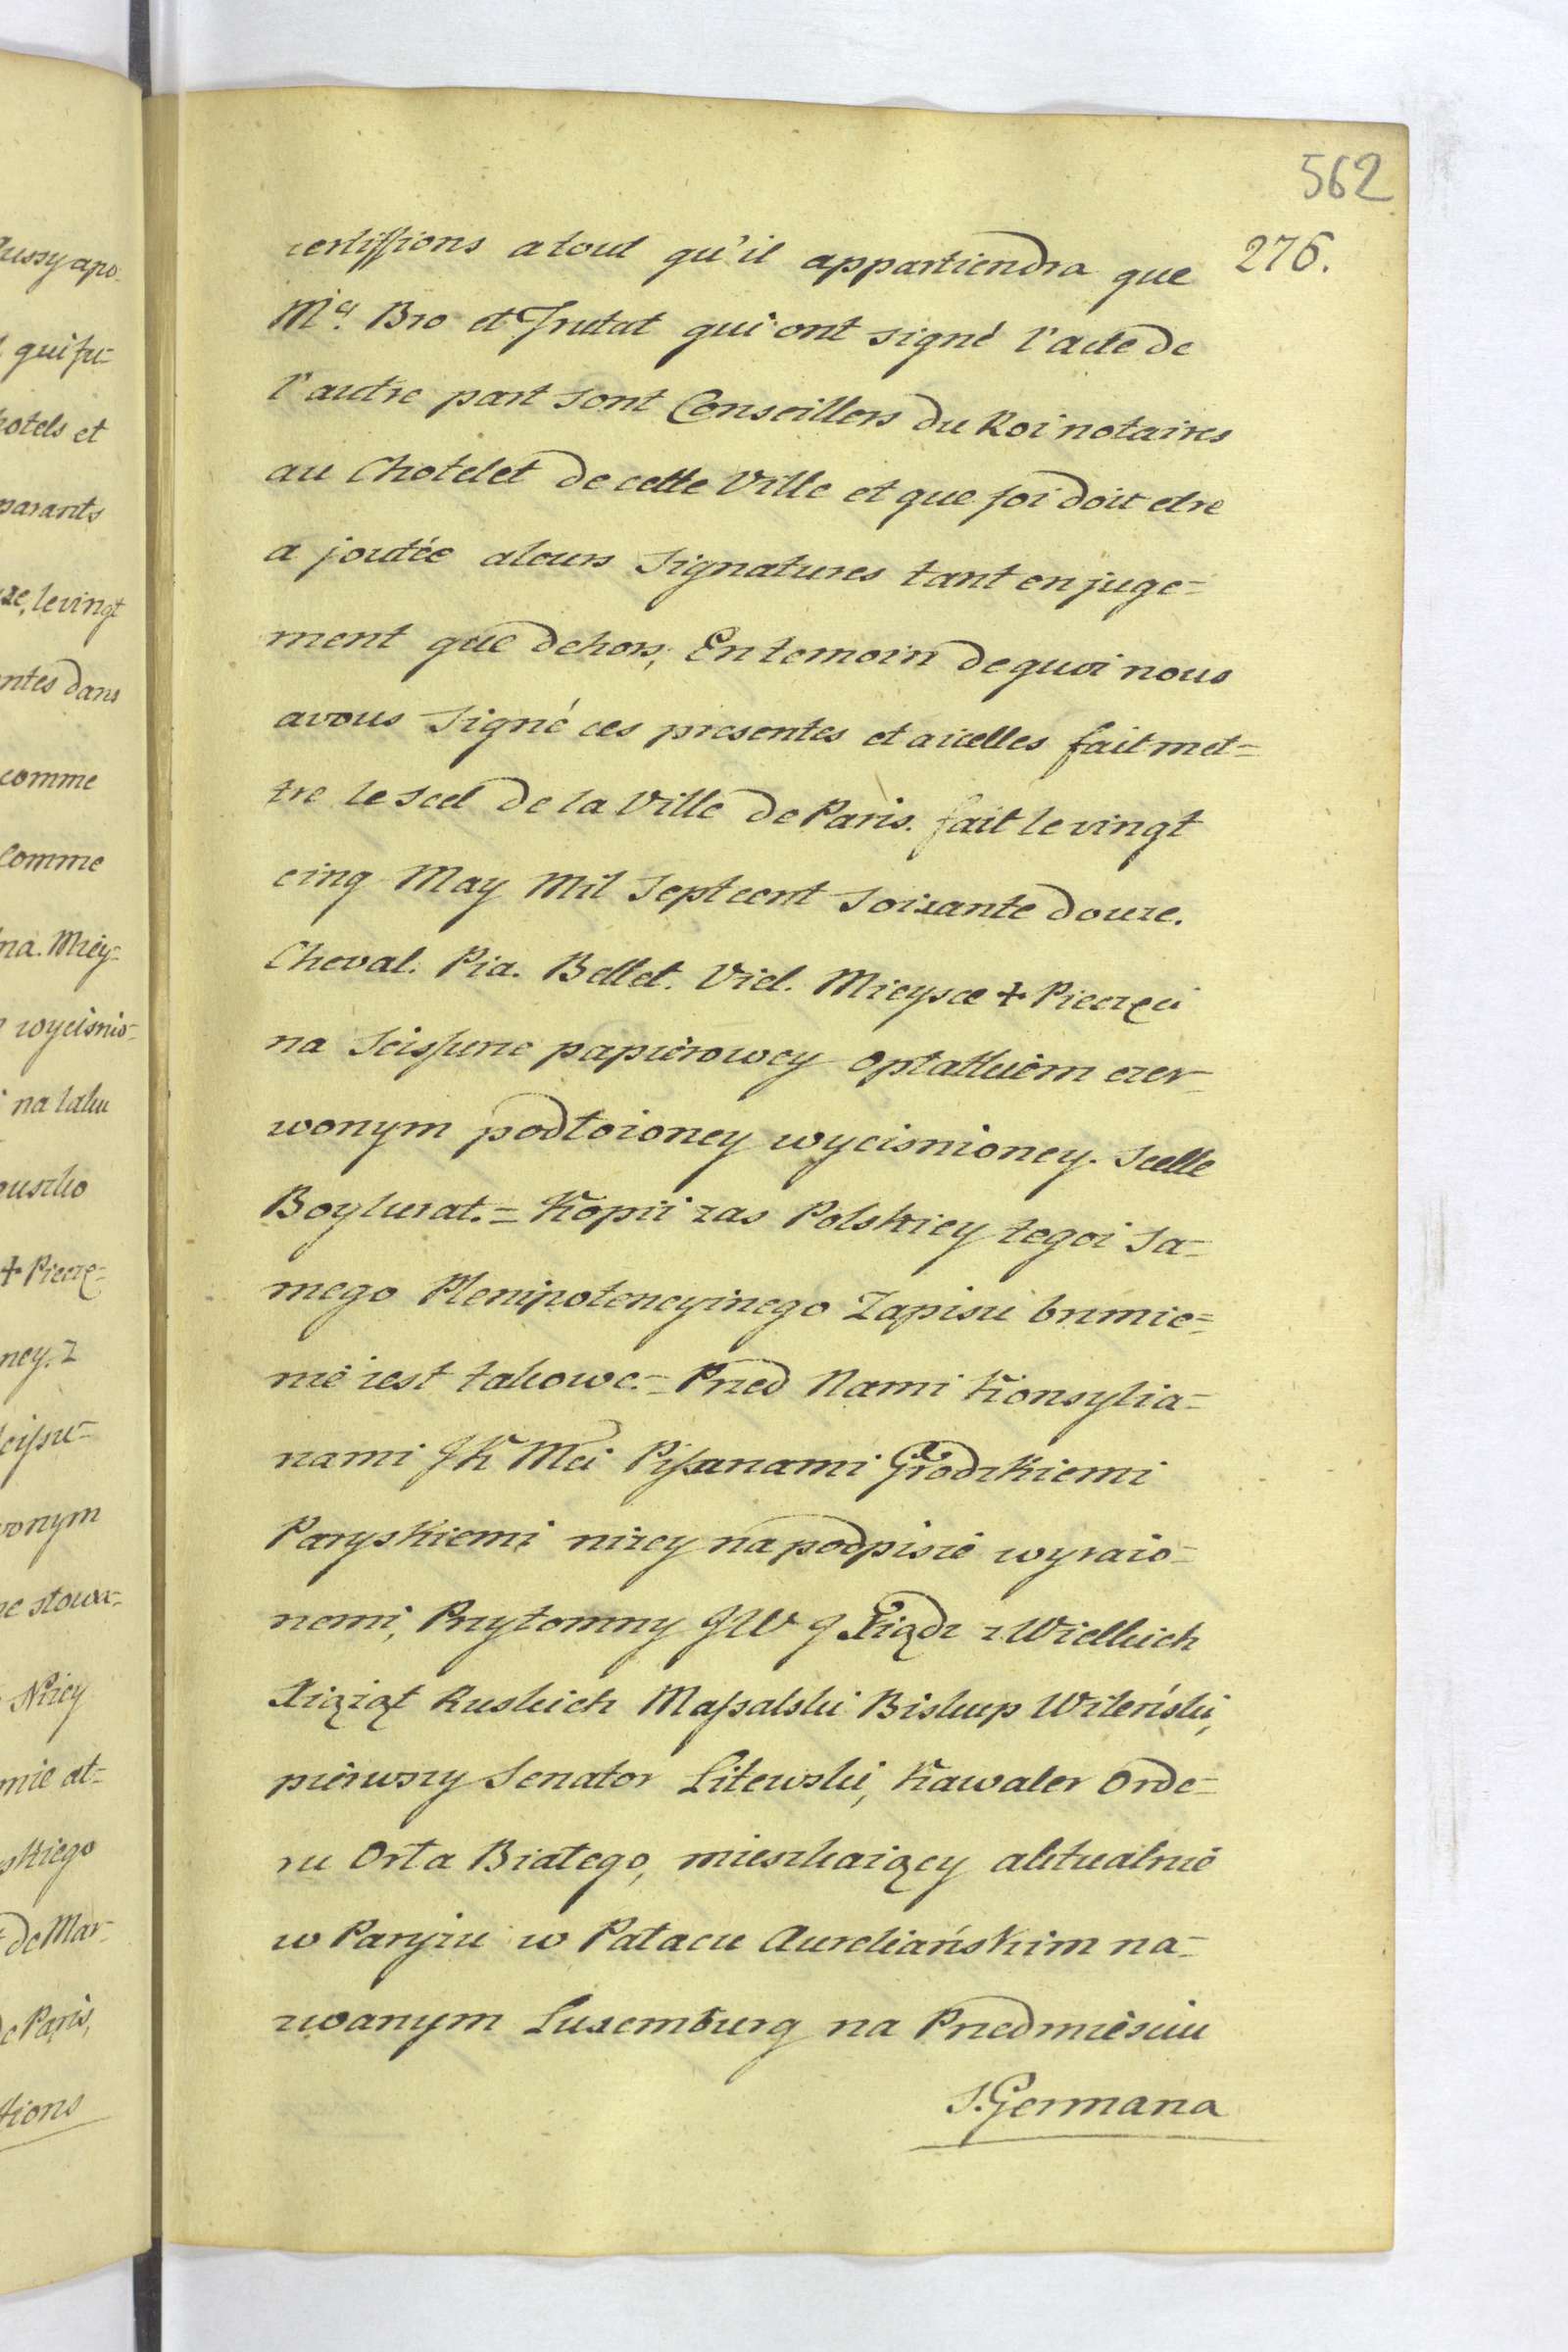 562
276.
certifsions a tout qu'il appartiendra que
Mes. Bro et Trutat qui ont signé l'acte de
l'autre part sont Conseillers du Roi notaires
au Chotelet de cette Ville et que foi doit etre
a joutée aleurs Signatures tant en juge=
ment que dehors; En temoin de quoi nous
avous Signé ces presentes et aicelles fait met=
tre le Scel de la Ville de Paris. fait le vingt
cinq May Mil Sept cent Soixante douze.
Cheval. Pia. Bellet. Viel. Mieysce + Pieczęci
na Scifsune papierowey opłatkiem czer=
wonym podłożoney wycisnioney. Scelle
=Kopii zas Polskiey tegoż Sa=
mego Plenipotencyinego Zapisu brzmie=
nie iest takowe.= Przed Nami Konsylia=
rzami JK Mci Pisarzami Grodzkiemi
Paryskiemi niżey na podpisie wyrażo=
nemi, Przytomny JW J Xiądz z Wielkich
Xiążąt Ruskich Mafsalski Biskup Wileński,
pierwszy Senator Litewski, Kawaler Orde=
ru Orła Białego, mieszkaiący aktualnie
w Paryżu w Pałacu Aureliańskim na=
zwanym Luxemburg na Przedmiesciu
S. Germana
ussy apo
qui fu=
hotels et
parants
ze, le vingt
ntes dans
comme
Comme
na. Miey=
wycisnio=
na laku
uszko
+ Piecze=
ney. Z
onym
e słowa=
Niżey
mie at=
skiego
de Mar=
e Paris,
tions